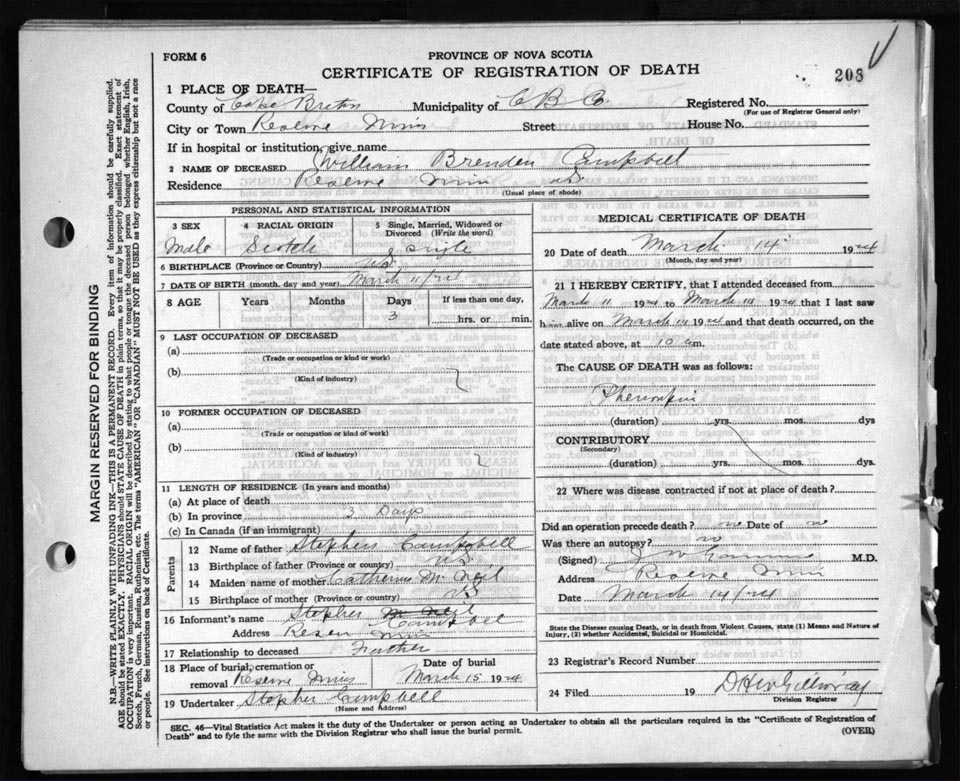 FORM 6
PROVINCE OF NOVA SCOTIA
CERTIFICATE OF REGISTRATION OF DEATH
203
1 PLACE OF DEATH—
County of Cape Breton Municipality of C B Co Registered No.
(For use of Registrar General only)
City or Town Reserve Mines Street House No.
If in hospital or institution, give name
2 NAME OF DECEASED William Brenden Campbell
Residence Reserve Mines NS
(Usual place of abode)
PERSONAL AND STATISTICAL INFORMATION
3 SEX 4 RACIAL ORIGIN 5 Single, Married, Widowed or Divorced (Write the word)
Male Scotch Single
6 BIRTHPLACE (Province or Country) NS
7 DATE OF BIRTH (month, day and year) March 11/24
8 AGE Years Months Days If less than one day,
3 hrs. or min.
9 LAST OCCUPATION OF DECEASED
(a)
(Trade or occupation or kind or work)
(b)
(Kind of industry)
10 FORMER OCCUPATION OF DECEASED
(a)
(Trade or occupation or kind of work)
(b)
(Kind of industry)
11 LENGTH OF RESIDENCE (In years and months)
(a) At place of death
(b) In province 3 Days
(c) In Canada (if an immigrant)
Parents
12 Name of father Stephen Campbell
13 Birthplace of father (Province or country) NS
14 Maiden name of mother Catherine McNeil
15 Birthplace of mother (Province or country) NS
16 Informant's name Stephen McNeil Campbell
Address Reserve Mines
17 Relationship to deceased Father
18 Place of burial, cremation or removal Reserve Mines Date of burial March 15 1924
19 Undertaker Stephen Campbell
(Name and Address)
MEDICAL CERTIFICATE OF DEATH
20 Date of death March 14 1924
(Month, day and year)
21 I HEREBY CERTIFY, that I attended deceased from
March 11 1924 to March 14 1924 that I last saw
him alive on March 14 1924 and that death occurred, on the
date stated above, at 10 a.m.
The CAUSE OF DEATH was as follows:
(duration) yrs. mos. dys
CONTRIBUTORY
(Secondary)
(duration) yrs. mos. dys.
22 Where was disease contracted if not at place of death?
Did an operation precede death? no Date of no
Was there an autopsy? no
(Signed) M.D.
Address Reserve Mines
Date March 14/24
State the Disease causing Death, or in death from Violent Causes, state (1) Means and Nature of Injury, (2) whether Accidental, Suicidal or Homicidal.
23 Registrar's Record Number
24 Filed 19 D H McGillivray
Division Registrar
SEC. 46—Vital Statistics Act makes it the duty of the Undertaker or person acting as Undertaker to obtain all the particulars required in the "Certificate of Registration of
Death" and to fyle the same with the Division Registrar who shall issue the burial permit. (OVER)
MARGIN RESERVED FOR BINDING
N.B.—WRITE PLAINLY WITH UNFADING INK—THIS IS A PERMANENT RECORD. Every item of Information should be carefully supplied.
AGE should be stated EXACTLY. PHYSICIANS should STATE CAUSE OF DEATH in plain terms, so that it may be properly classified. Exact statement of
OCCUPATION is very important. RACIAL ORIGIN will be described by stating to what people or tongue the deceased person belonged whether English, Irish,
Scotch, French, German, Russian, Ruthenian, etc. The terms "AMERICAN" OR "CANADIAN" MUST NOT BE USED as they express citizenship but not a race
or people. See instructions on back of Certificate.